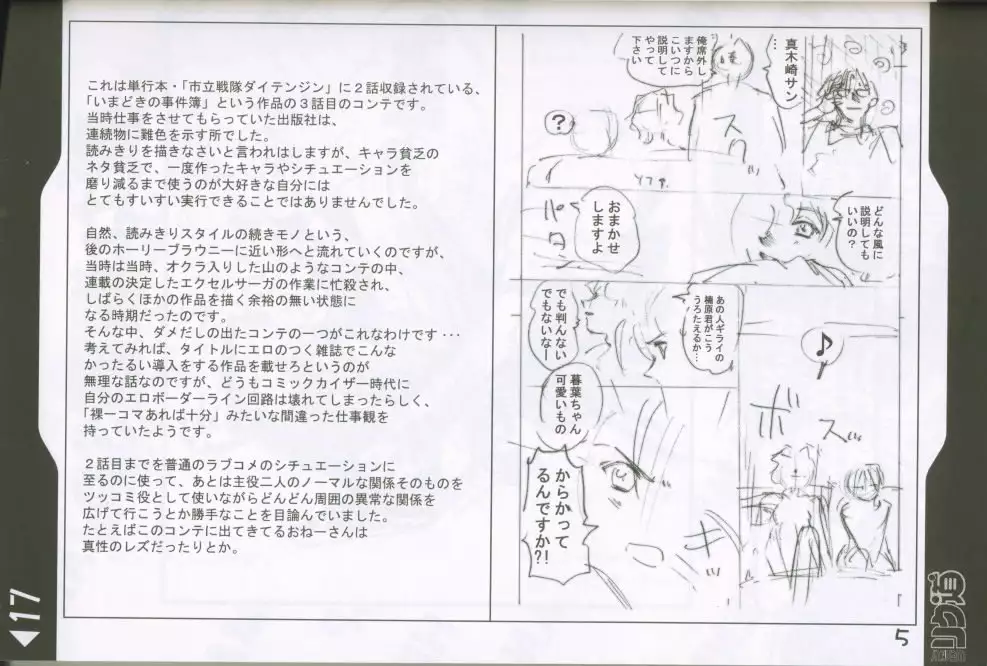 これは単行本・「市立戦隊ダイテンジン」に２話収録されている、
「いまどきの事件簿」という作品の３話目のコンテです。
当時仕事をさせてもらっていた出版社は、
連続物に難色を示す所でした。
読みきりを描きなさいと言われはしますが、キャラ貧乏の
ネタ貧乏で、一度作ったキャラやシチュエーションを
磨り減るまで使うのが大好きな自分には
とてもすいすい実行できることではありませんでした。
自然、読みきりスタイルの続きモノという、
後のホーリーブラウニーに近い形へと流れていくのですが、
当時は当時、オクラ入りした山のようなコンテの中、
連載の決定したエクセルサーガの作業に忙殺され、
しばらくほかの作品を描く余裕の無い状態に
なる時期だったのです。
そんな中、ダメだしの出たコンテの一つがこれなわけです･･･
考えてみれば、タイトルにエロのつく雑誌でこんな
かったるい導入をする作品を載せろというのが
無理な話なのですが、どうもコミックカイザー時代に
自分のエロボーダーライン回路は壊れてしまったらしく、
「裸一コマあれば十分」みたいな間違った仕事観を
持っていたようです。
２話目までを普通のラブコメのシチュエーションに
至るのに使って、あとは主役二人のノーマルな関係そのものを
ツッコミ役として使いながらどんどん周囲の異常な関係を
広げて行こうとか勝手なことを目論んでいました。
たとえばこのコンテに出てきてるおねーさんは
真性のレズだったりとか。
真木崎サン
…
俺席外し
ますから
こいつに
説明して
やって
下さい
スッ
?
どんな風に
説明しても
いいの？
おまかせ
しますよ
あの人ギライの
楠原君がこう
うろたえるか…
でも判んない
でもないなー
暮葉ちゃん
可愛いもの
からかって
るんですか?!
キッ
♪
ボスッ
5
17